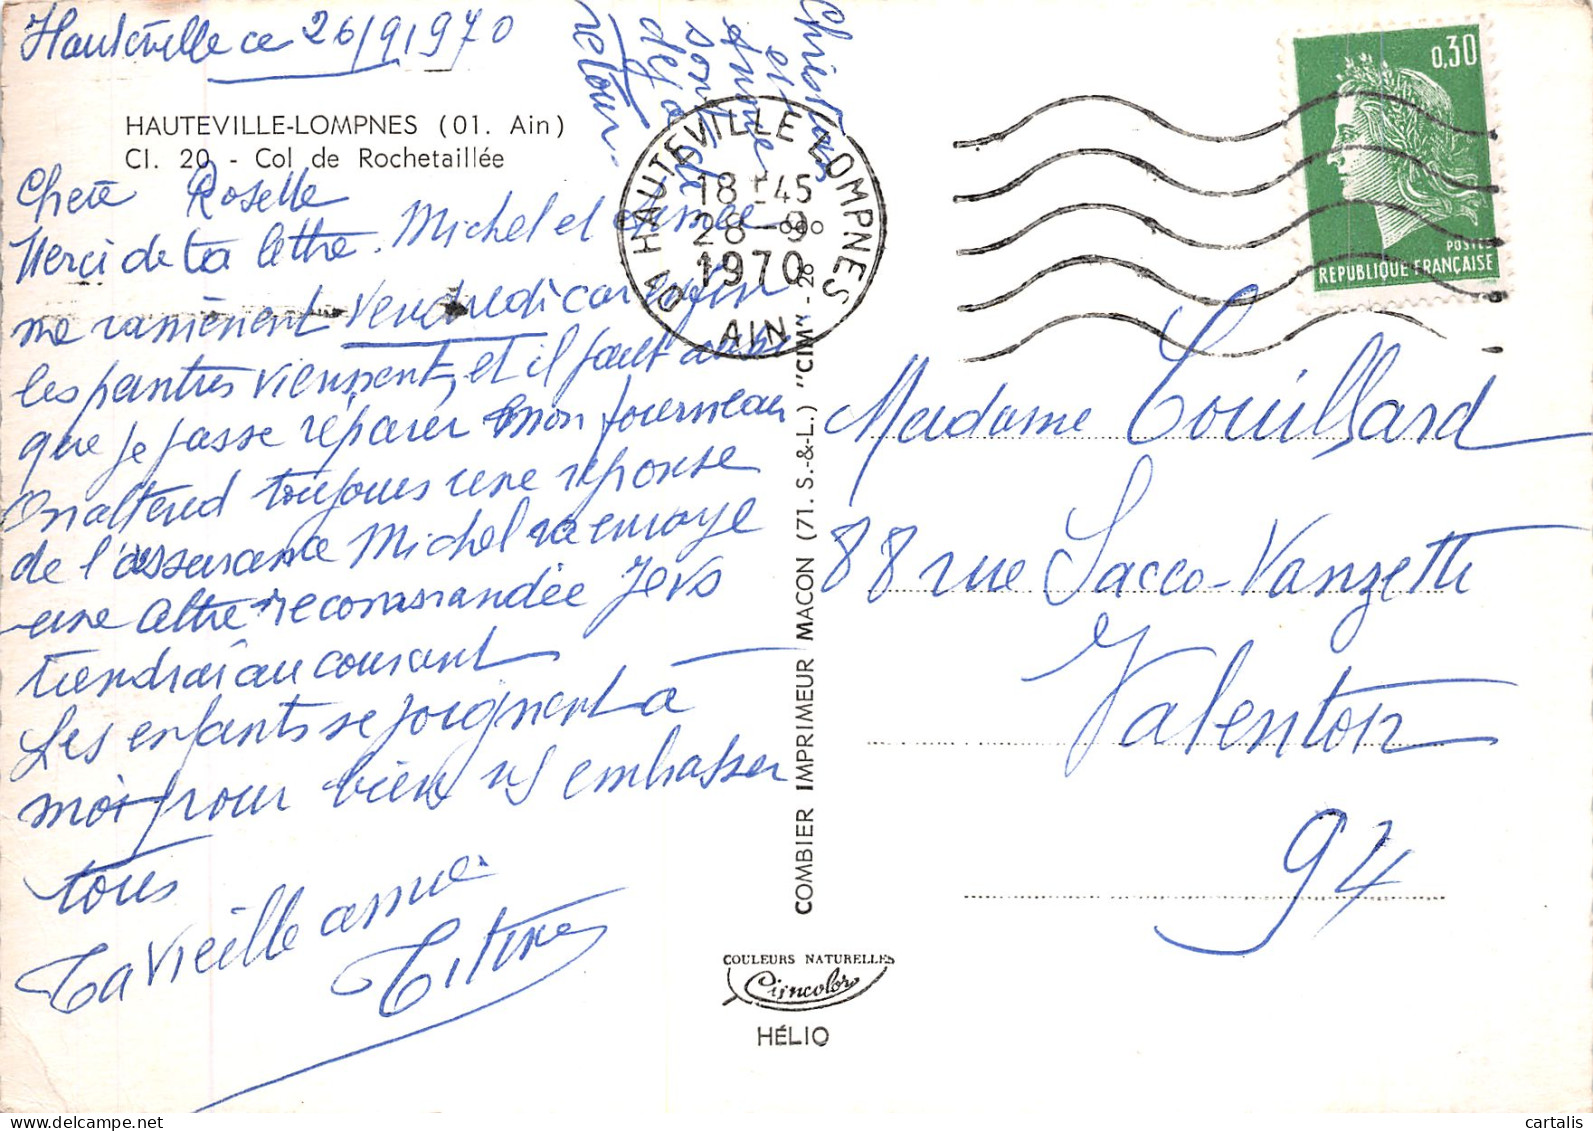 Hauteville ce 26/9/1970
HAUTEVILLE-LOMPNES (01. Ain)
Cl. 20 - Col de Rochetaillée
Chère Roselle
Merci de ta lettre. Michel et Aimée
me ramènent vendredi car enfin
les peintres viennent, et il faut aussi
que je fasse réparer mon fourneau
On attend toujours une réponse
de l'assurance Michel renvoye
une lettre recommandée Je vs
tiendrai au courant
Les enfants se joignent à
moi pour bien vs embrasser
tous
Ta vieille amie
Titine
Christian
et
Anne
sont de
déjà
retour.
HAUTEVILLE-LOMPNES
18-45
28-9
1970
AIN
0,30
POSTES
REPUBLIQUE FRANÇAISE
Madame Couillard
88 rue Sacco-Vanzetti
Valenton
94
COMBIER IMPRIMEUR MACON (71. S.-&-L.) "CIM"
COULEURS NATURELLES
Cimcolor
HÉLIO
cartalis